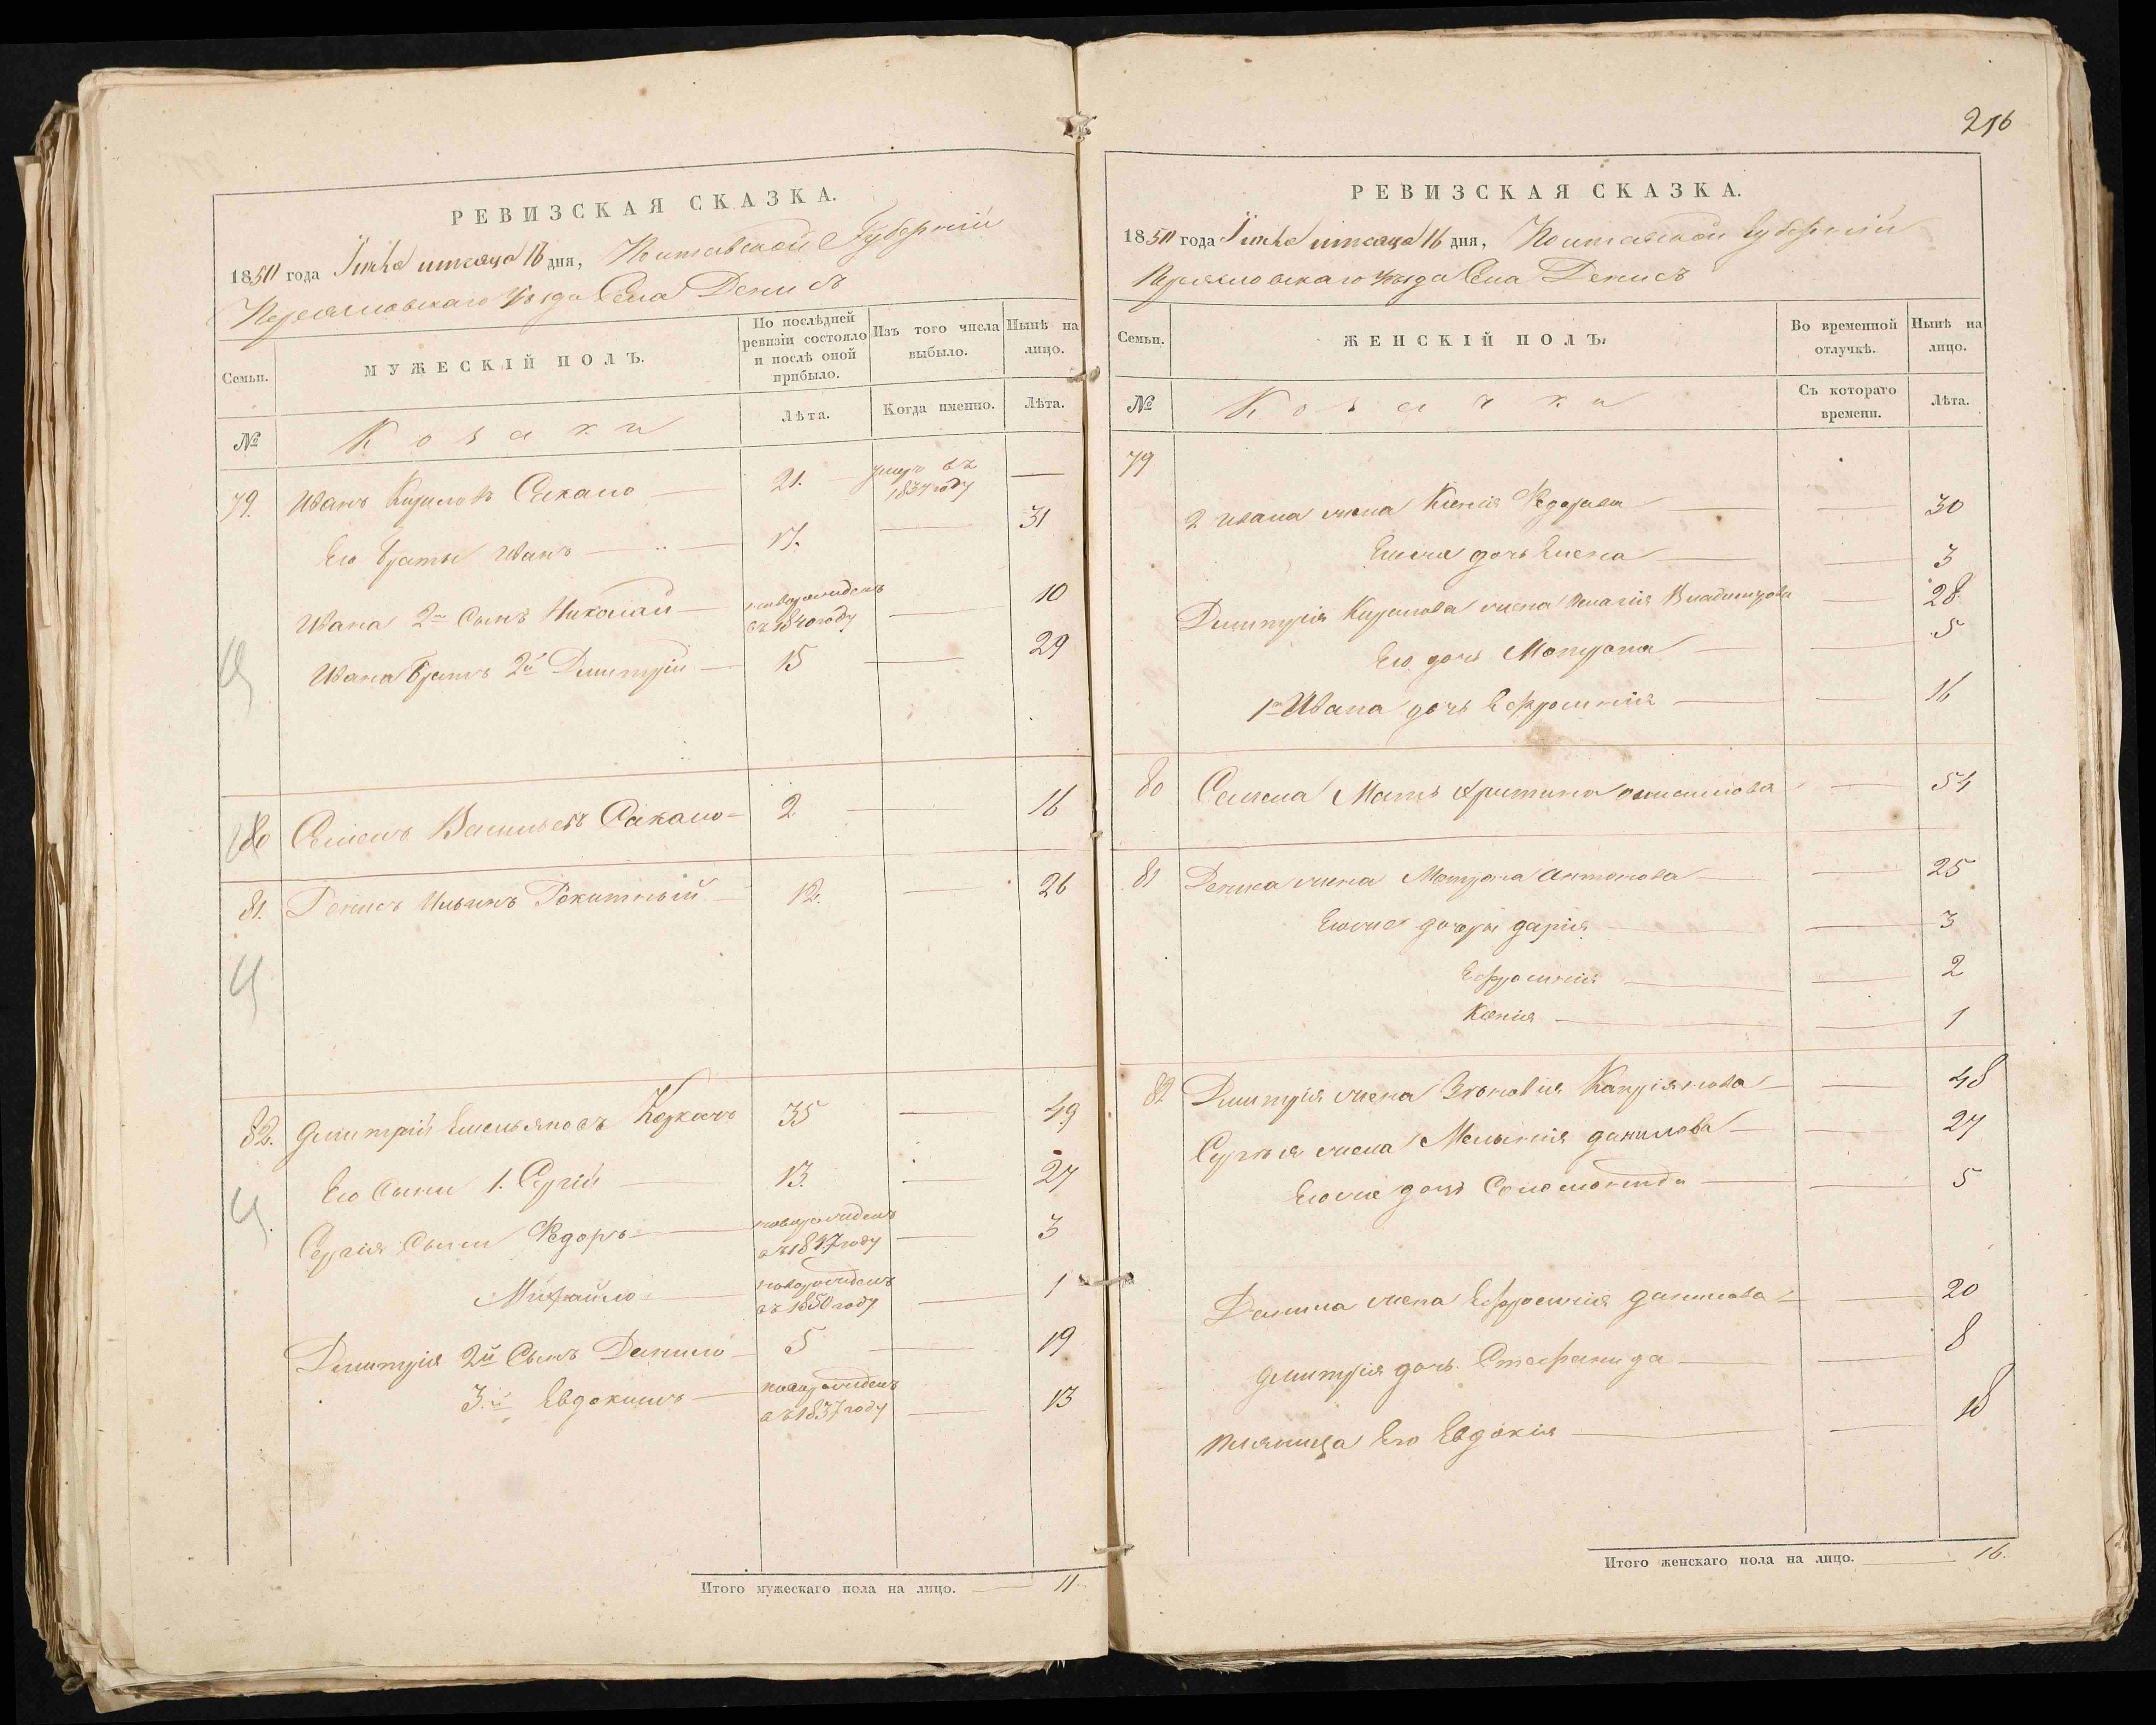 РЕВИЗСКАЯ СКАЗКА.
1850 года Іюня месяца 16 дня, Полтавской Губерній
Переясловскаго уѣзда Села Денисъ
Семьи.
МУЖЕСКІЙ ПОЛЪ.
По послѣдней ревизіи состояло и послѣ оной прибыло.
Изъ того числа выбыло.
Нынѣ на лицо.
№
Козаки
Лѣта.
Когда именно.
Лѣта.
79. Иванъ Кириловъ Сакало 21. умеръ въ 1837 году
Его братъя Иванъ 17. 31
Ивана 2го Сынъ Николай новорожденъ въ 1840 году 10
Ивана братъ 2й Дмитрій 15 29
80 Семенъ Васильевъ Сакало 2 16
81. Денисъ Ильинъ Рокитный 12. 26
82. Дмитрій Емельяновъ Коркачъ 35 49
Его Сыни 1. Сергій 13. 27
Сергія Сыни Федоръ новорожденъ въ 1847 году 3
Михайло новорожденъ въ 1850 году 1
Дмитрія 2й Сынъ Данило 5 19
3й Евдокимъ новорожденъ въ 1837 году 13
Итого мужескаго пола на лицо. 11
216
РЕВИЗСКАЯ СКАЗКА.
1850 года Іюня месяца 16 дня, Полтавской Губерній
Переясловскаго уѣзда Села Денисъ
Семьи.
ЖЕНСКІЙ ПОЛЪ.
Во временной отлучкѣ.
Нынѣ на лицо.
№
Козачки
Съ котораго времени.
Лѣта.
79
2 Ивана жена Ксенія Федорова 30
Егоже дочь Елена 3
Дмитрія Кирилова жена Пелагія Владимирова 28
Его дочь Мотрона 5
1го Ивана дочь Ефросинія 16
80 Семена Мать Христина 54
81 Дениса жена Мотрона Антонова 25
Егоже дочери Дарія 3
Ефросинія 2
Ксенія 1
82 Дмитрія жена Зѣновія Капріянова 48
Сергѣя жена Меланія Данилова 27
Егоже дочь Соломонида 5
Данила жена Ефросинія Данилова 20
Дмитрія дочь Стефанида 8
Его Евдокія 18
Итого женскаго пола на лицо. 16.